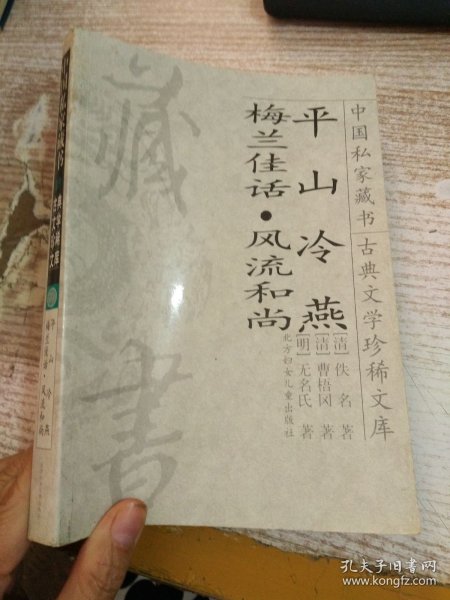 中国私家藏书 古典文学珍稀文库
平山冷燕
梅兰佳话·风流和尚
[清] 佚名 著
[清] 曹梧冈 著
[明] 无名氏 著
北方妇女儿童出版社
藏書
孔夫子旧书网
www.kongfz.com